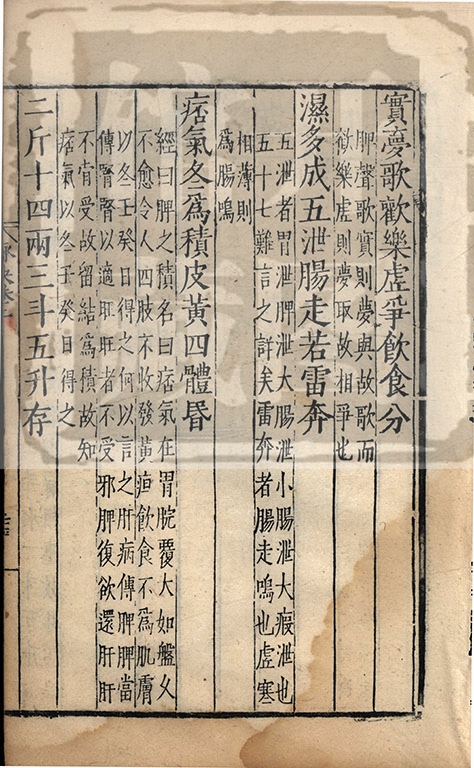 實夢歌歡樂虛爭飲食分
脾聲歌實則夢與故歌而
歡樂虛則夢取故相爭也
濕多成五泄腸走若雷奔
五泄者胃泄脾泄大腸泄小腸泄大瘕泄也
五十七難言之詳矣雷奔者腸走鳴也虛寒
相薄則
爲腸鳴
痞氣冬爲積皮黃四體昏
經曰脾之積名曰痞氣在胃脘覆大如盤久
不愈令人四肢不收發黃疸飲食不爲肌膚
以冬壬癸日得之何以言之肝病傳脾脾當
傳腎腎以適旺旺者不受邪脾復欲還肝肝
不肯受故留結爲積故知
痞氣以冬壬癸日得之
二斤十四兩三斗五升存